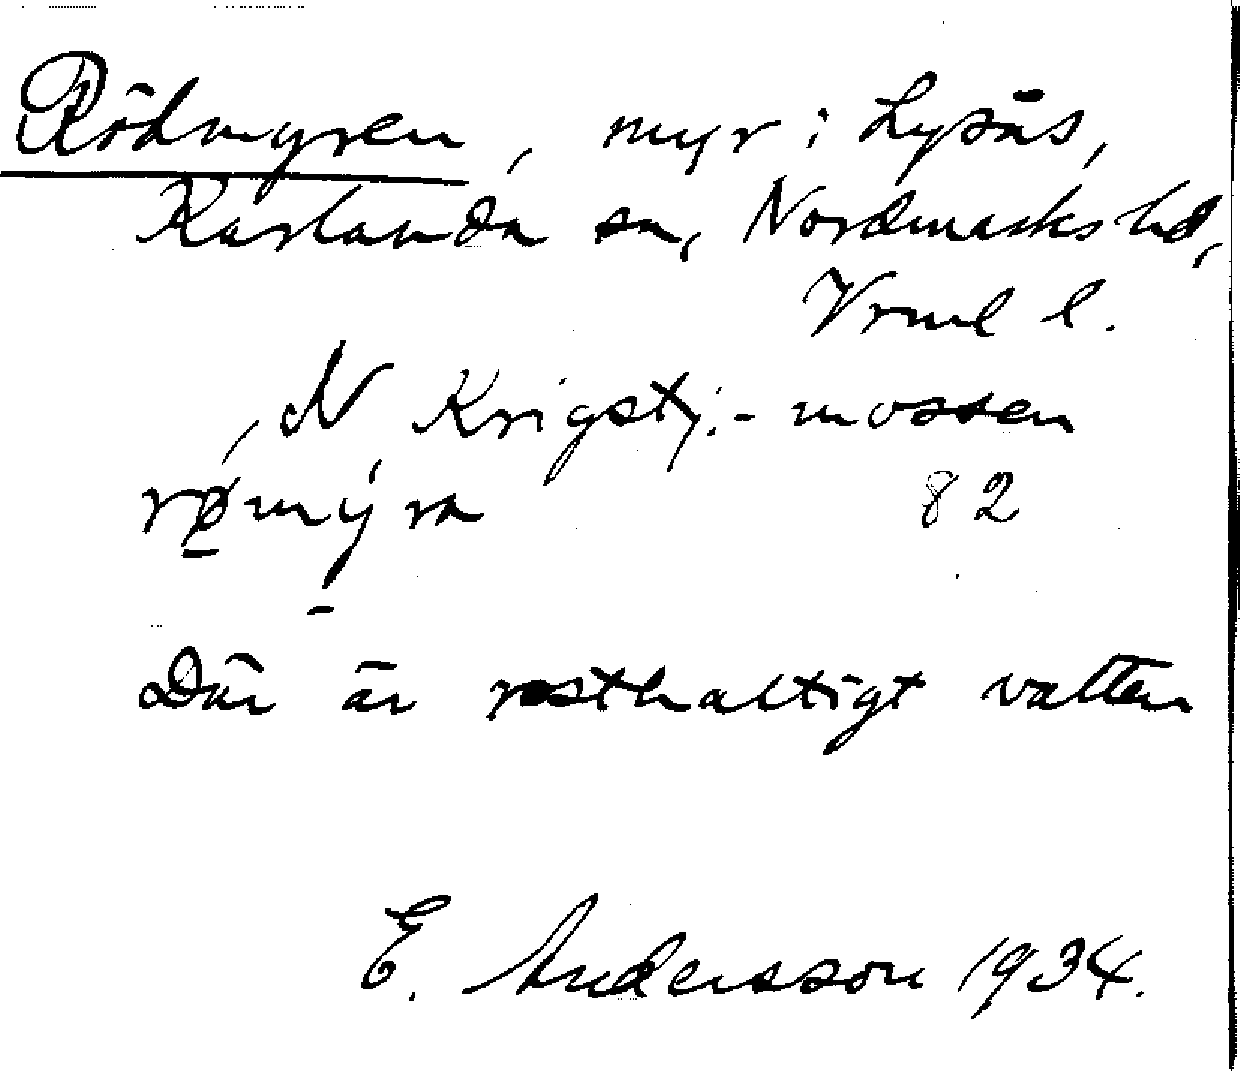 Rödmyren, myr i Lysås,
Karlanda sn, Nordmarks hd,
Vrml l.
, N Krigstj:-mossen
rø̱mýra 82
Där är rosthaltigt vatten
E. Andersson 1934.